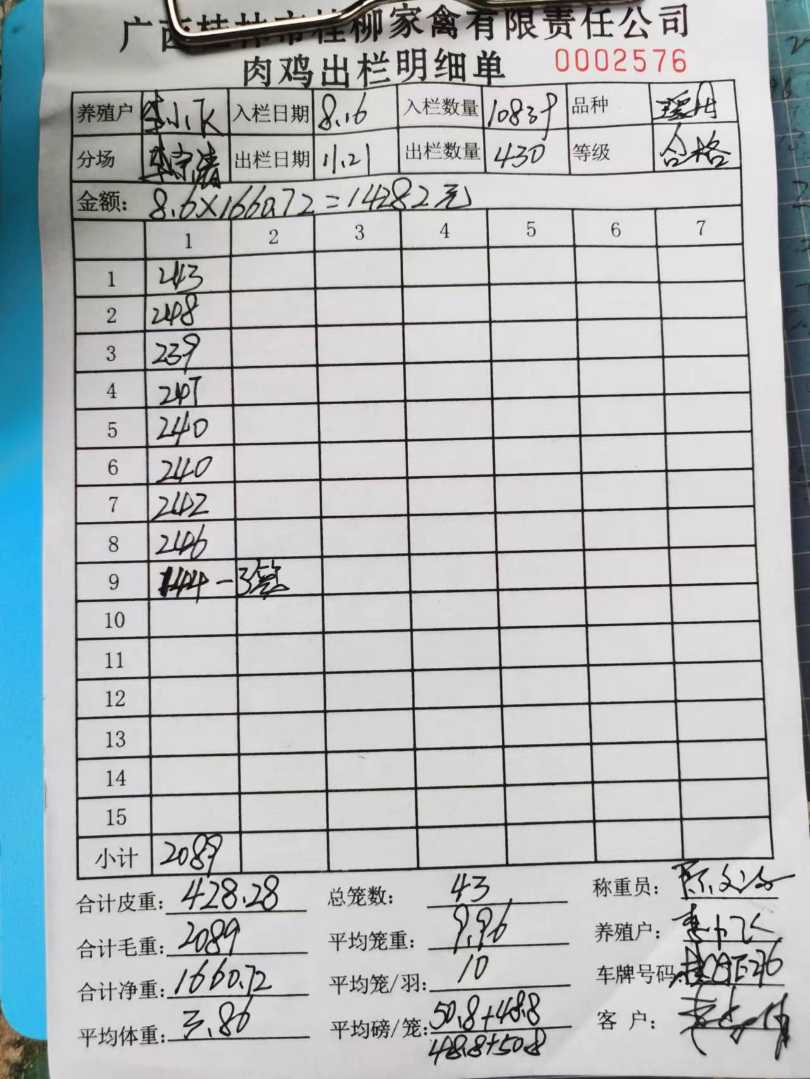 广西桂林市桂柳家禽有限责任公司
肉鸡出栏明细单 0002576
养殖户 李小飞 入栏日期 8.16 入栏数量 10839 品种
分场 出栏日期 11.21 出栏数量 430 等级 合格
金额: 8.6×1660.72=14282元
1 2 3 4 5 6 7
1 243
2 248
3 239
4 247
5 240
6 240
7 242
8 246
9 144-3笼
10
11
12
13
14
15
小计 2089
合计皮重: 428.28 总笼数: 43 称重员:
合计毛重: 2089 平均笼重: 9.96 养殖户: 李小飞
合计净重: 1660.72 平均笼/羽: 10 车牌号码:
平均体重: 3.86 平均磅/笼: 50.8+48.8 客 户:
48.8+50.8